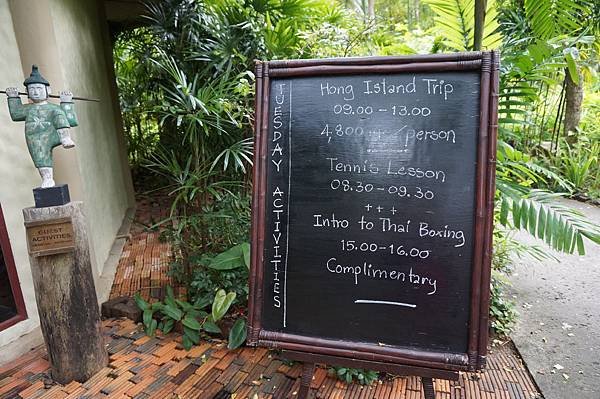 TUESDAY ACTIVITIES
Hong Island Trip
09.00 - 13.00
4,800++ /person
Tennis Lesson
08.30 - 09.30
+ + +
Intro to Thai Boxing
15.00-16.00
Complimentary
GUEST
ACTIVITIES